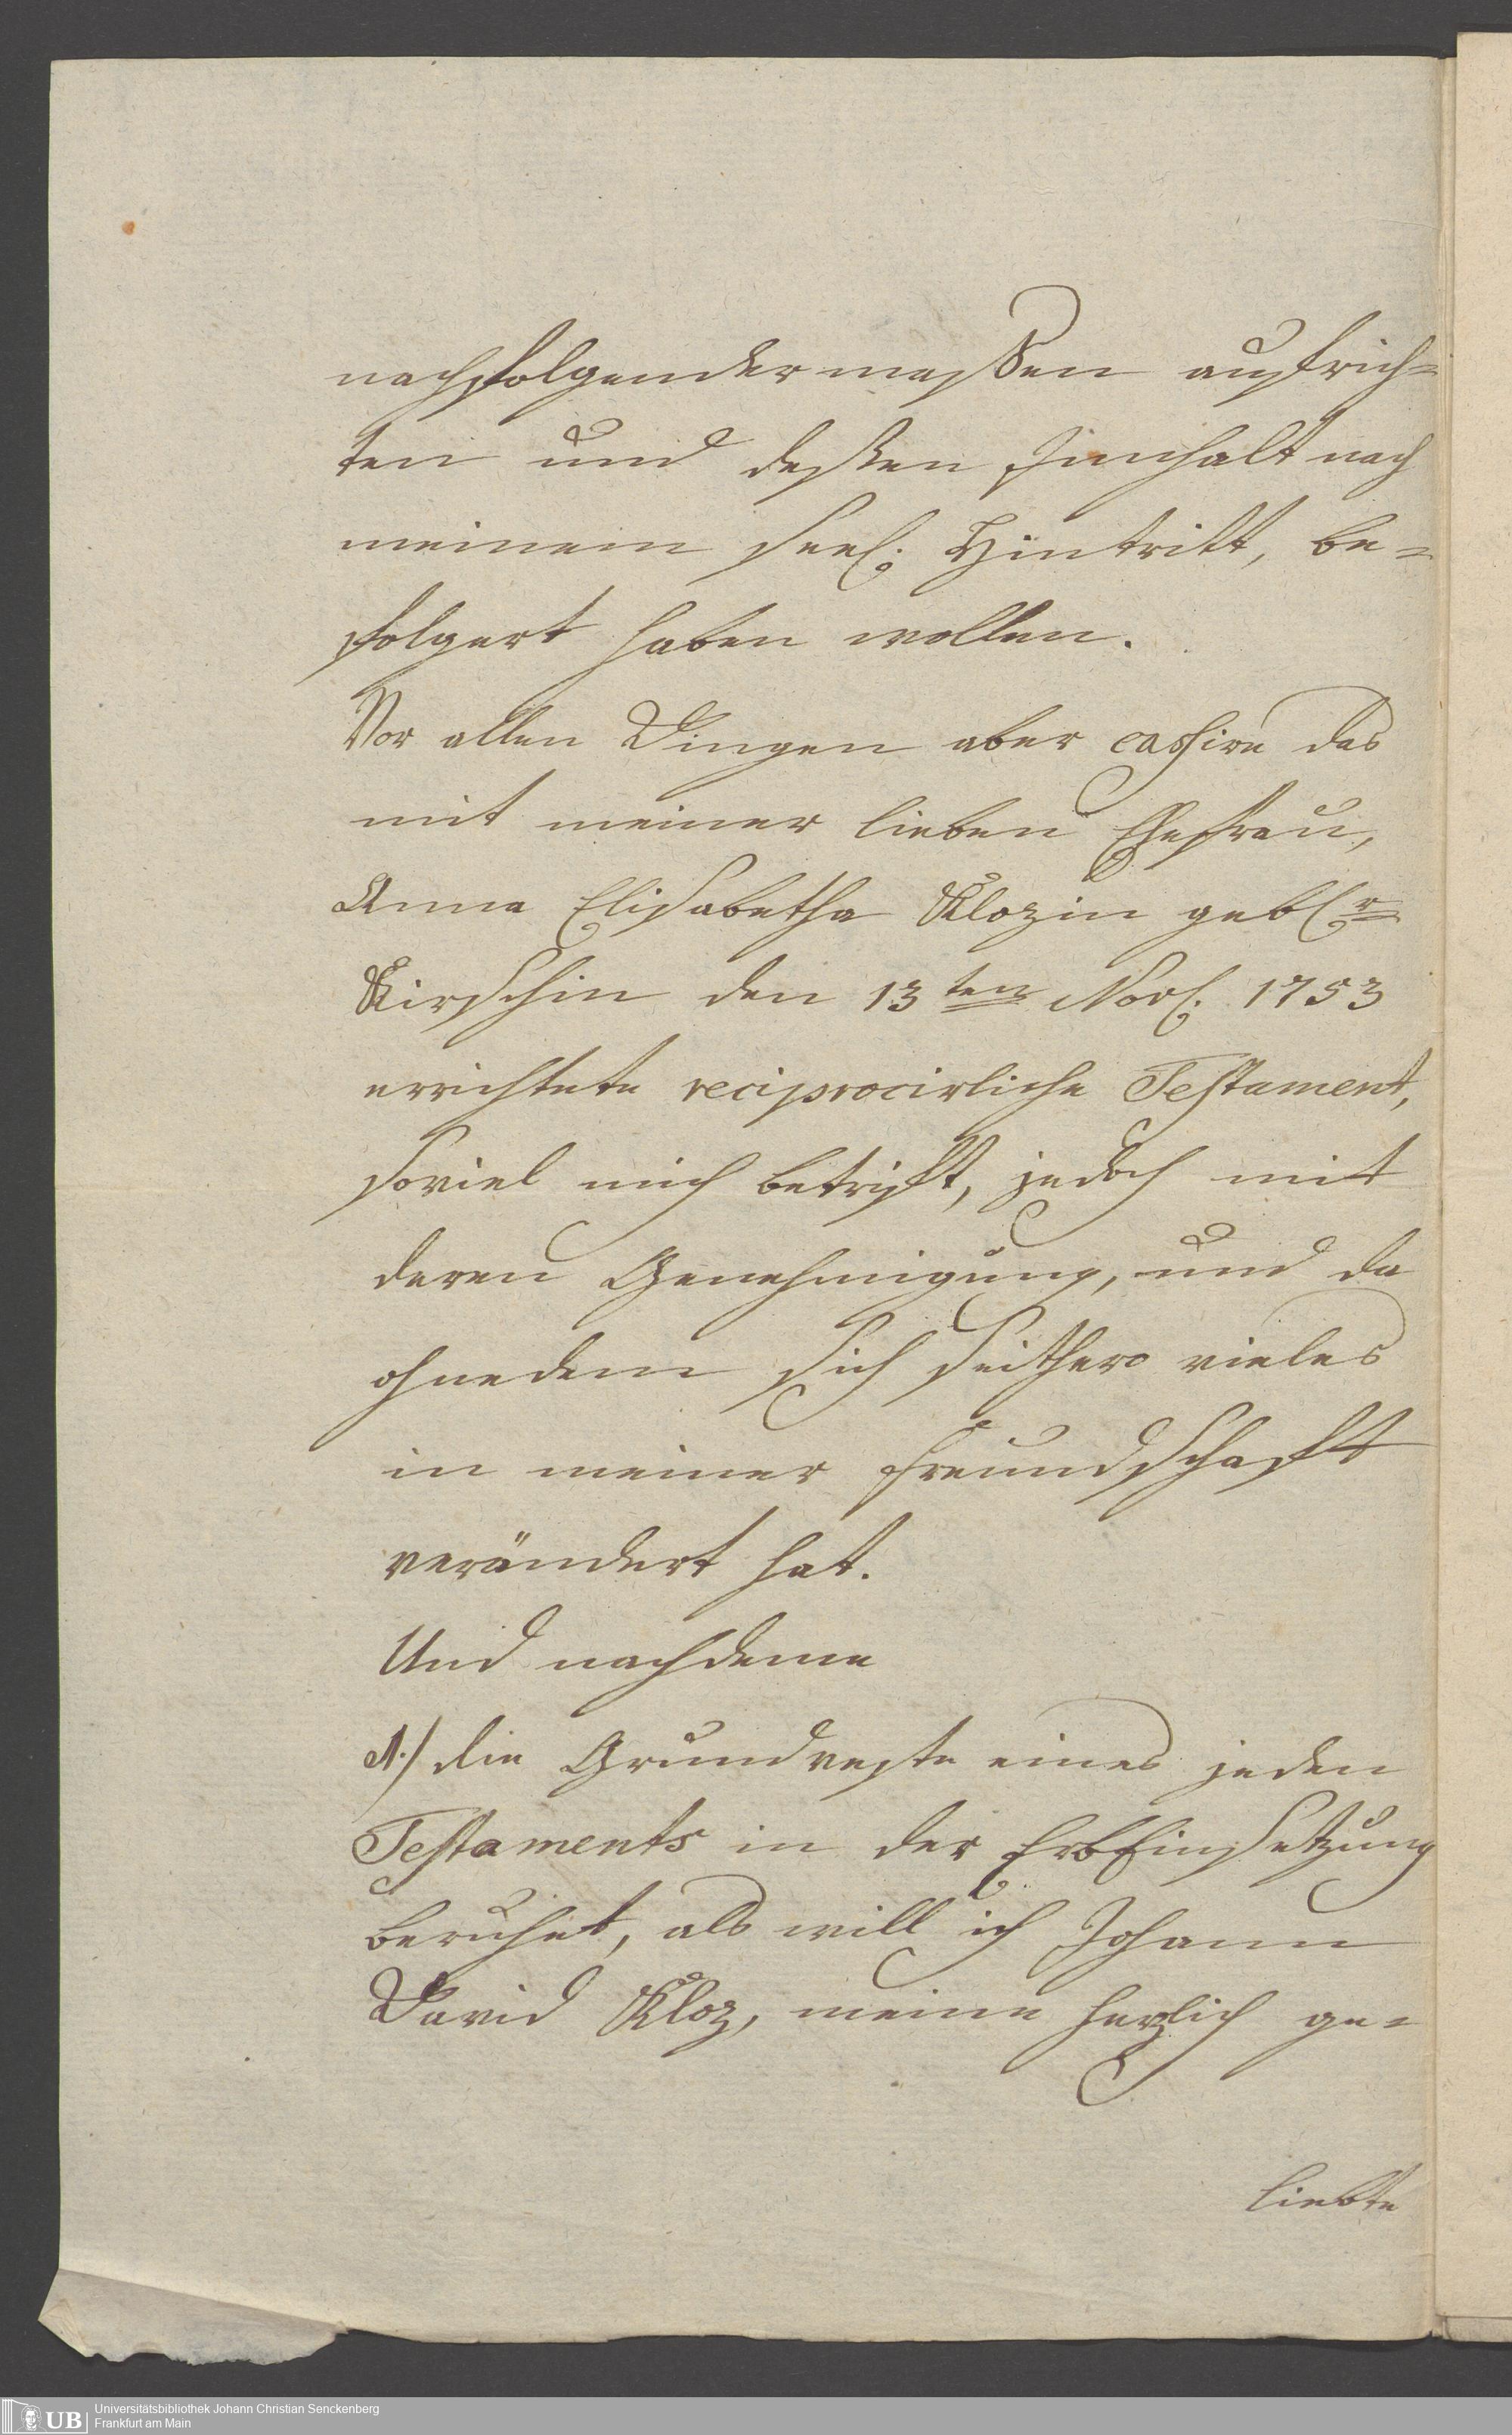 nachfolgender massen aufrich=
ten und dessen Innhalt nach
meinem seel. Hintritt, be=
folgert haben wollen.
Vor allen Dingen aber cassire das
mit meiner lieben Ehefrau,
Anna Elisabetha Klozin gebr
Kirschin den 13ten Nov. 1753
errichtete reciprocirliche Testament,
soviel mich betrift, jedoch mit
deren Genehmigung, und da
ohnedem sich seithero vieles
in meiner Freundschafft
verändert hat.
Und nachdeme
1./ die Grundveste eines jeden
Testaments in der ErbEinsetzung
beruhet, als will ich Johann
David Kloz, meine herzlich ge=
liebte
UB
Universitätsbibliothek Johann Christian Senckenberg
Frankfurt am Main